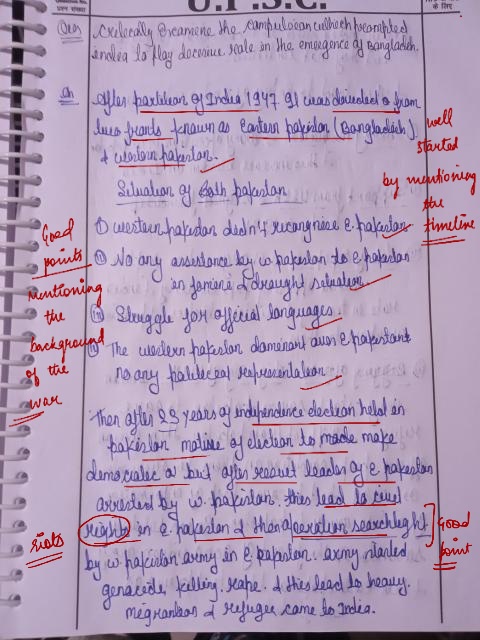 U.P.S.C.
प्रश्न संख्या
के लिए
Ques critically Examine the compulsion which prompted
India to play decisive role in the emergence of Bangladesh.
After partition of India 1947 it was
two fronts known as Eastern pakistan (Bangladesh)
& western pakistan.
well
started
by mentioning
the
timeline
Situation of Both pakistan
① western pakistan didn't recognise E. pakistan
② No any assistance by w pakistan to E pakistan
in famine & draught situation
Good
points
mentioning
the
background
of the
war
Struggle for official languages
The western pakistan dominant over E pakistan
no any political representation
Then after 23 years of independence election held in
pakistan motive of election to made make
democratic but after result leader of E pakistan
arrested by w. pakistan. this lead to civil
rights in E pakistan & then operation searchlight
riots
Good
point
by w pakistan army in E pakistan. army started
genocide, killing, rape. & this lead to heavy
migration & refugee came to India.